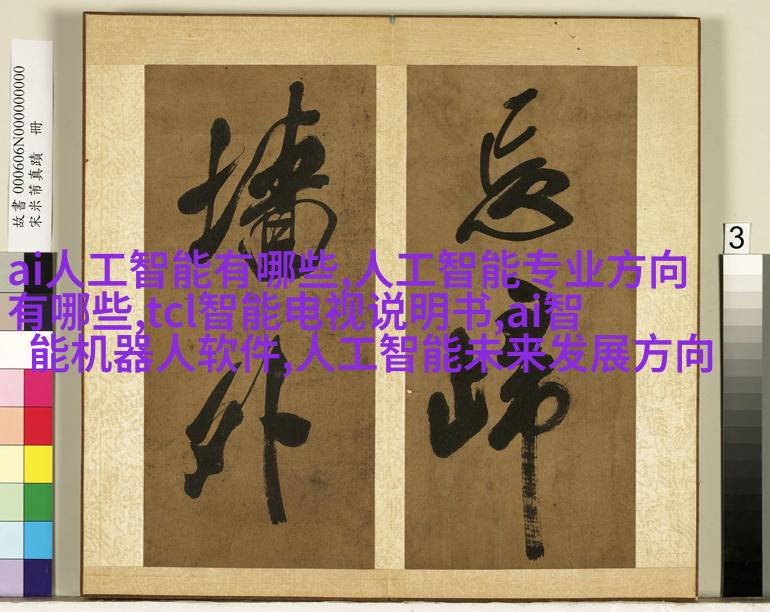 故書 000606N000000000
宋米芾真蹟 冊
忘歸
墻外
3
ai人工智能有哪些,人工智能专业方向
有哪些,tcl智能电视说明书,ai智
能机器人软件,人工智能未来发展方向